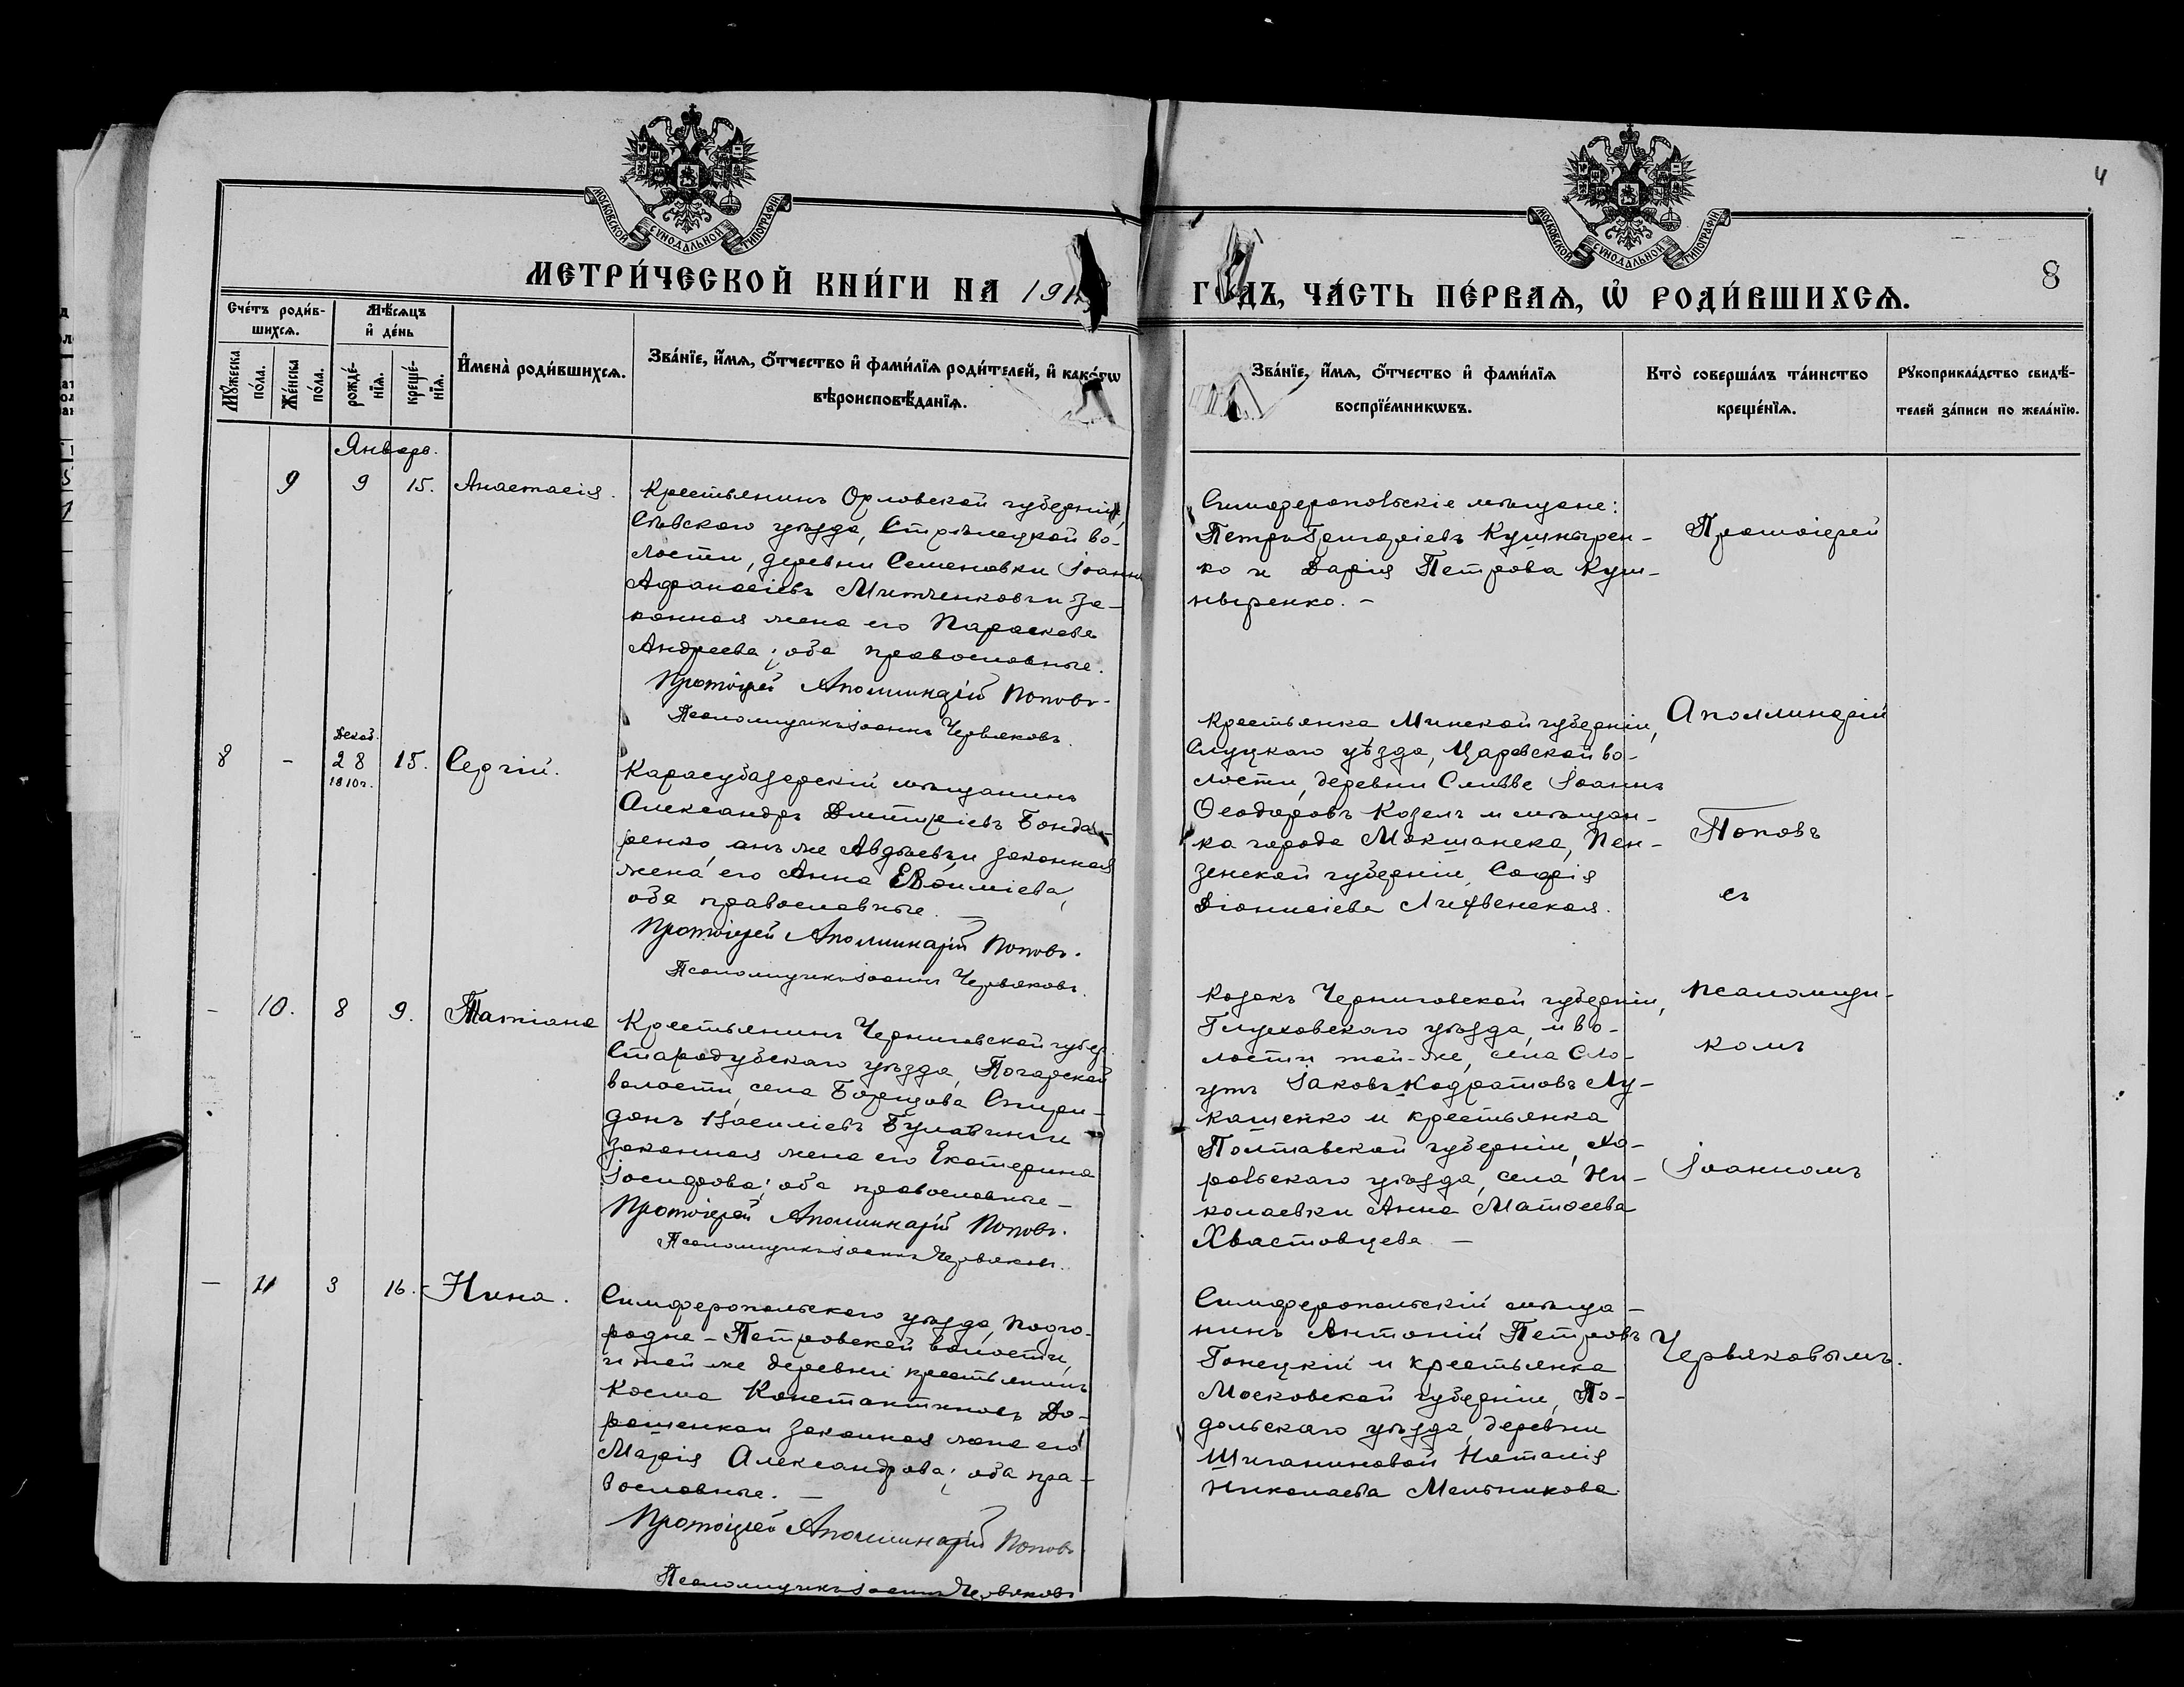 МОСКОВСКОЙ СѴНОДАЛЬНОЙ ТИПОГРАФІИ
МОСКОВСКОЙ СѴНОДАЛЬНОЙ ТИПОГРАФІИ
4
8
МЕТРИ́ЧЕСКОЙ КНИ́ГИ НА 191
ГОДЪ, ЧА́СТЬ ПЕ́РВАѦ, Ѡ҆ РОДИ́ВШИХСѦ.
Сче́тъ роди́в-
шихсѧ.
Мѣ́сѧцъ
и҆ де́нь
Мꙋ́жеска
по́ла.
Же́нска
по́ла.
рожде́-
нїѧ.
креще́-
нїѧ.
И҆мена̀ роди́вшихсѧ.
Зва́нїе, и҆́мѧ, ѻ҆́тчество и҆ фами́лїѧ роди́телей, и҆ како́гѡ
вѣроисповѣ́данїѧ.
Зва́нїе, и҆́мѧ, ѻ҆́тчество и҆ фами́лїѧ
воспрїе́мникѡвъ.
Кто̀ соверша́лъ та́инство
креще́нїѧ.
Рꙋкоприкла́дство свидѣ́-
телей за́писи по жела́нїю.
Январь.
9 9 15. Анастасія.
Крестьянинъ Орловской губерніи,
Сѣвского уѣзда, Стрѣлецкой во-
лости, деревни Семеновки Іоаннъ
Аѳанасіевъ Митченковъ и за-
конная жена его Параскева
Андреева; оба православные.
Протоіерей Аполлинарій Поповъ.
Псаломщикъ Іоаннъ Червяковъ.
Симферопольскіе мѣщане:
Петръ Григоріевъ Кушнырен-
ко и Дарія Петрова Куш-
ныренко. -
Протоіерей
8 - Декаб. 28 1810г. 15. Сергій.
Карасубазарскій мѣщанинъ
Александръ Дмитріевъ Бонда-
ренко, онъ же Авдѣевъ и законная
жена его Анна Евѳиміева,
оба православные. -
Протоіерей Аполлинарій Поповъ.
Псаломщикъ Іоаннъ Червяковъ.
Крестьянка Минской губерніи,
Слуцкаго уѣзда, Царевской во-
лости, деревни Сливве Іоаннъ
Ѳеодоровъ Козелъ и мѣщан-
ка города Мокшанска, Пен-
зенской губерніи, Софія
Діонисіева Литвенская.
Аполлинарій
Поповъ
съ
- 10. 8 9. Татіана
Крестьянинъ Черниговской губер.
Стародубскаго уѣзда, Погарской
волости, села Борщова Спири-
донъ Василіевъ Булавинъ и
законная жена его Екатерина
Іосифова; оба православные -
Протоіерей Аполлинарій Поповъ.
Псаломщикъ Іоаннъ Червяковъ.
Козакъ Черниговской губерніи,
Глуховскаго уѣзда, и во-
лости той-же, села Сло-
утъ Іаковъ Кодратовъ Лу-
кашенко и крестьянка
Полтавской губерніи, Хо-
рольскаго уѣзда, села Ни-
колаевки Анна Матѳеева
Хвастовцева -
псаломщи-
комъ
Іоанномъ
- 11 3 16. Нина.
Симферопольскаго уѣзда, Подго-
родне-Петровской волости,
и той же деревни крестьянинъ
Косма Константиновъ До-
рошенко и законная жена его
Марія Александрова; оба пра-
вославные. -
Протоіерей Аполлинарій Поповъ
Псаломщикъ Іоаннъ Червяковъ
Симферопольскій мѣща-
нинъ Антоній Петровъ
Гонецкій и крестьянка
Московской губерніи, По-
дольскаго уѣзда, деревни
Наталія
Николаева Мельникова.
Червяковымъ.